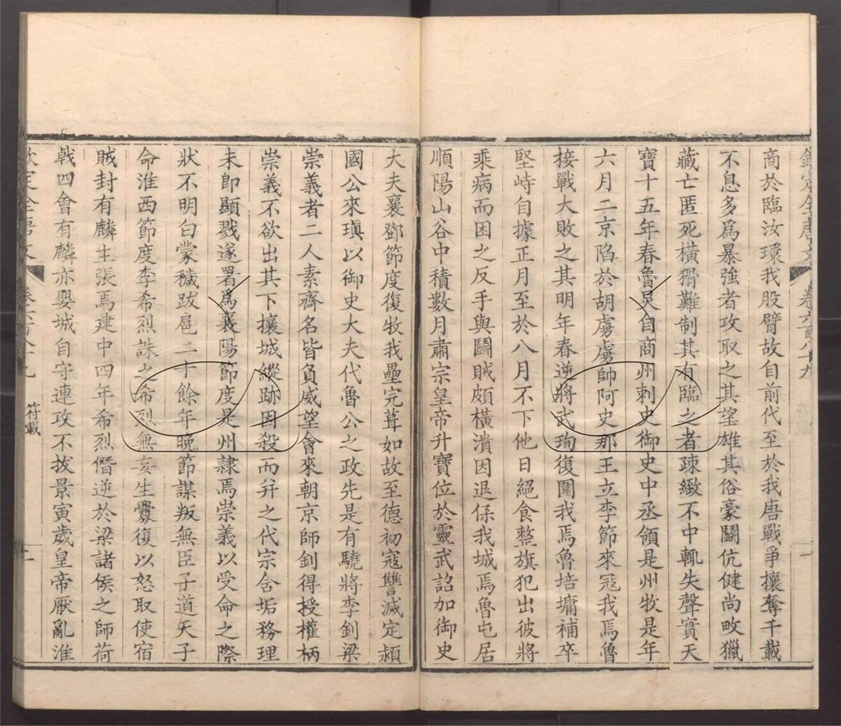 商於臨汝環我股臂故自前代至於我唐戰爭攘奪千載
不息多為暴強者攻取之其望雄其俗豪鬬伉健尚畋獵
藏亡匿死橫猾難制其有臨之者疎緻不中輒失聲寶天
寶十五年春魯炅自商州刺史御史中丞領是州牧是年
六月二京陷於胡虜虜師阿史那王立李節來冦我焉魯
接戰大敗之其明年春逆將武珣復圍我焉魯培墉補卒
堅峙自據正月至於八月不下他日絕食整旗犯出彼將
乘病而困之反手與鬬賊頗橫潰因退保我城焉魯屯居
順陽山谷中積數月肅宗皇帝升寶位於靈武詔加御史
大夫襄鄧節度復牧我壘完葺如故至德初寇讐滅定潁
國公來瑱以御史大夫代魯公之政先是有驍將李釗梁
崇義者二人素齊名皆負威望會來朝京師釗得授權柄
崇義不欲出其下攘城縱跡因殺而并之代宗含垢務理
未即顯戮遂署為襄陽節度是州隸焉崇義以受命之際
狀不明白蒙穢跋扈二十餘年晚節謀叛無臣子道天子
命淮西節度李希烈誅之希烈無亥生釁復以怒取使宿
賊封有麟生張焉建中四年希烈僭逆於梁諸侯之師荷
戟四會有麟亦嬰城自守連攻不拔景寅歲皇帝厭亂淮
欽定全唐文 卷六百八十九 符載